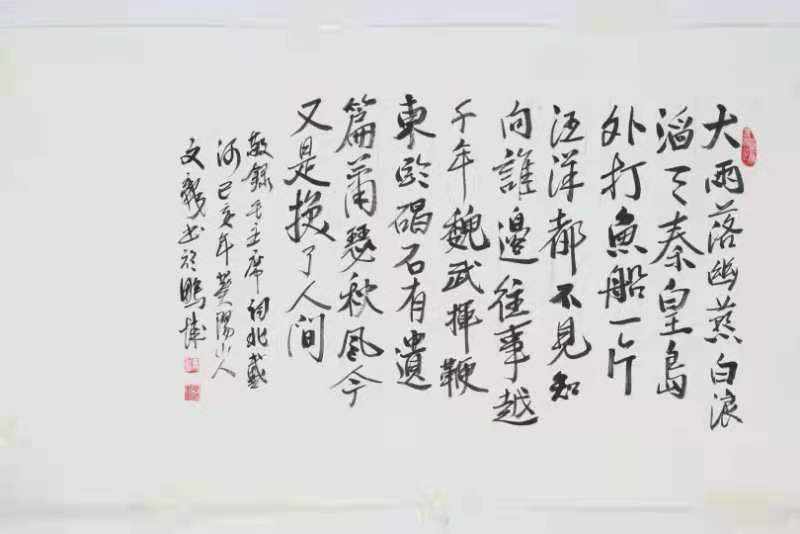 大雨落幽燕白浪
滔〻秦皇島
外打魚船一片
汪洋都不見知
向誰邊往事越
千年魏武揮鞭
東臨碣石有遺
篇蕭瑟秋風今
又是換了人间
敬錄毛主席詞北戴
河己亥年陽山人
文书於鵬城